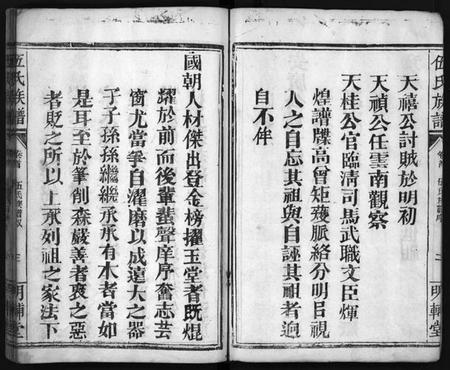 伍氏族譜
卷首
二
明輔堂
天禧公討賊於明初
天禎公任雲南觀察
天桂公官臨清司馬武職文臣煇
煌譜牒高曾矩矱脈絡分明目視
人之自忘其祖與自誣其祖者迥
自不侔
國朝人材傑出登金榜擢玉堂者既焜
燿於前而後輩蜚聲庠序奮志芸
窗尤當爭自濯磨以成遠大之器
子子孫孫繼繼承承有木者當如
是耳至於筆削森嚴善者褒之惡
者貶之所以上承列祖之家法下
伍氏族譜
卷首
三
明輔堂